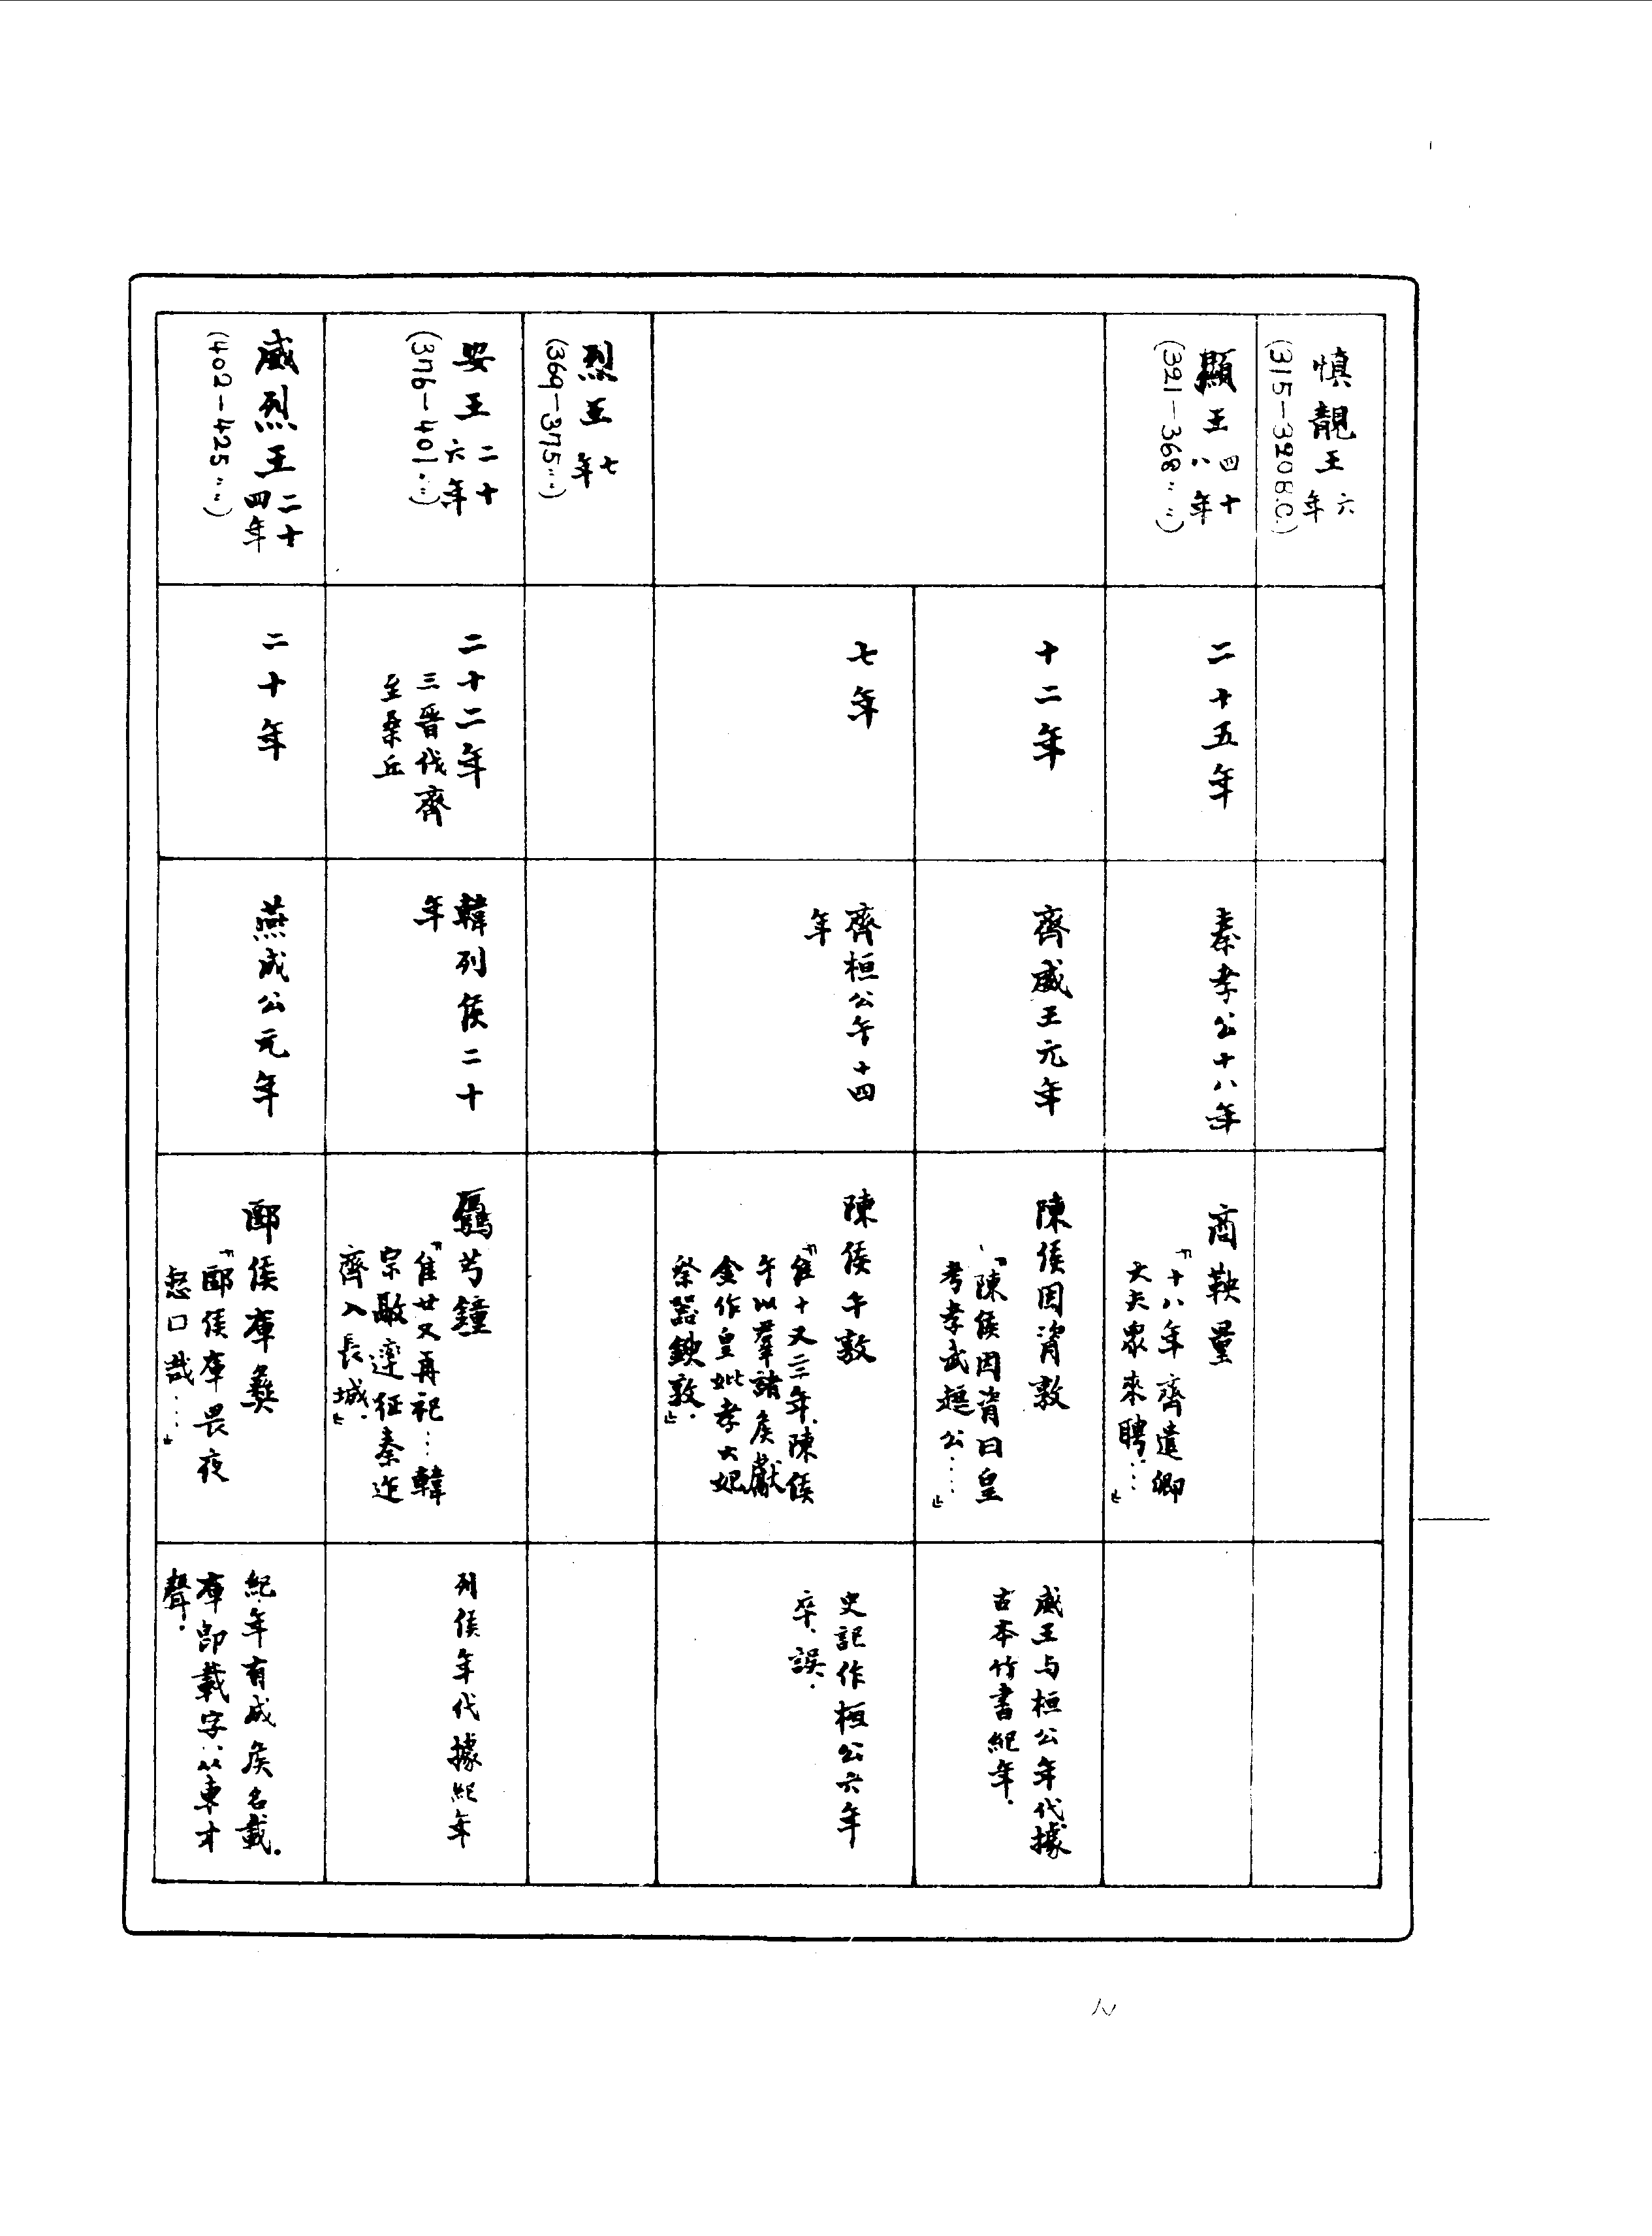 慎靚王六年
(315-320B.C.)
顯王四十八年
(321-368〃〃)
二十五年
秦孝公十八年
商鞅量
「十八年齊遣卿
大夫衆來聘……」
十二年
齊威王元年
陳侯因𬳵敦
「陳侯因𬳵曰皇
考孝武趄公……」
威王与桓公年代據
古本竹書紀年.
七年
齊桓公午十四
年
陳侯午敦
「隹十又三年.陳侯
午以羣諸侯獻
金作皇妣孝大妃
祭器鐭敦.」
史記作桓公六年
卒.誤.
烈王七年
(369-375〃〃)
安王二十六年
(376-401〃〃)
二十二年
三晋伐齊
至桑丘
韓列侯二十
年
驫芍鐘
「隹廿又再祀…韓
宗融達征秦迮
齊入長城.」
列侯年代據紀年
威烈王二十四年
(402-425〃〃)
二十年
燕成公元年
郾侯庫彝
「郾侯庫畏夜
惄口哉……」
紀年有成侯名載.
庫即載字.从車才
聲.